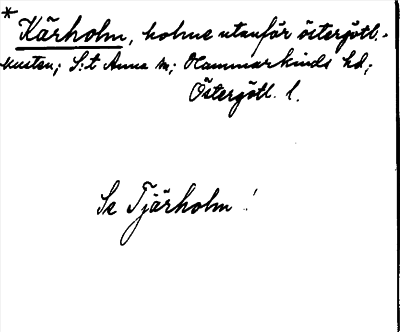 * Kärholm, holme utanför östergötl.-
kusten; S:t Anna sn; Hammarkinds hd;
Östergötl. l.
Se Tjärholm!